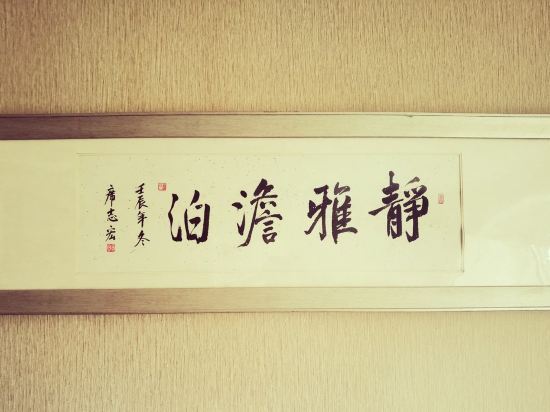 靜雅澹泊
壬辰年冬
席志宏